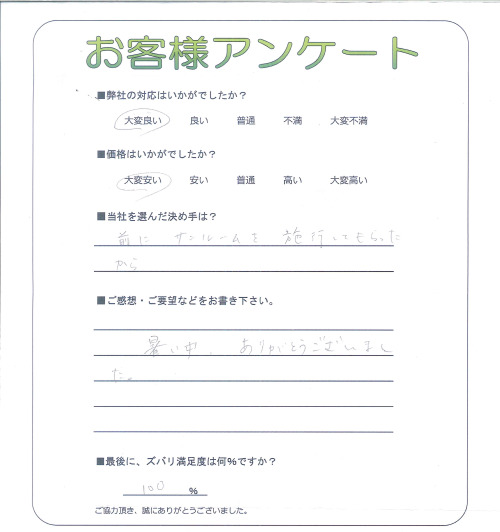 お客様アンケート
■弊社の対応はいかがでしたか？
大変良い 良い 普通 不満 大変不満
■価格はいかがでしたか？
大変安い 安い 普通 高い 大変高い
■当社を選んだ決め手は？
前に サンルームを 施行してもらった
から
■ご感想・ご要望などをお書き下さい。
暑い中、ありがとうございまし
た。
■最後に、ズバリ満足度は何%ですか？
100 %
ご協力頂き、誠にありがとうございました。